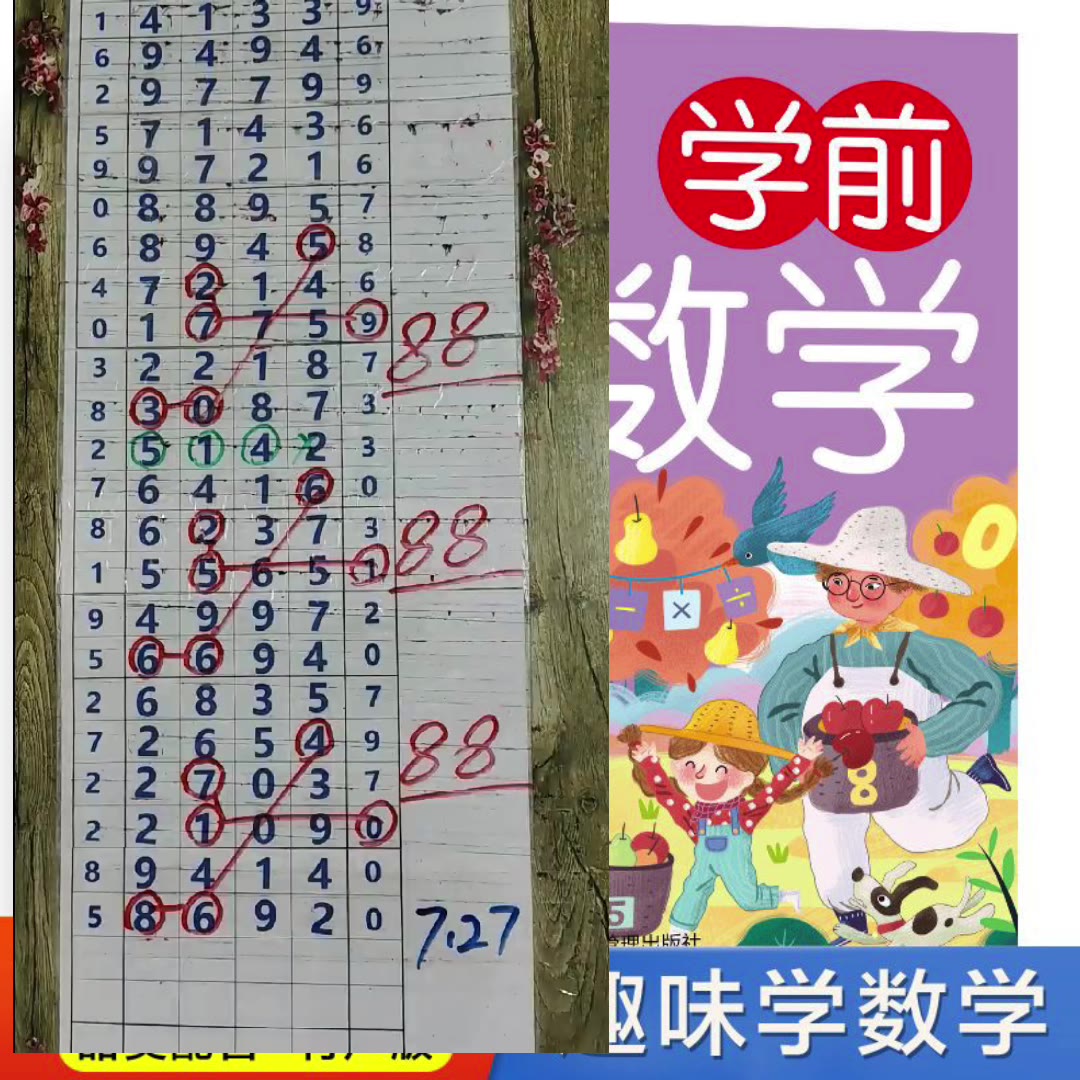 1 4 1 3 3 9
6 9 4 9 4 6
2 9 7 7 9 9
5 7 1 4 3 6
9 9 7 2 1 6
0 8 8 9 5 7
6 8 9 4 5 8
4 7 2 1 4 6
0 1 7 7 5 9
88
3 2 2 1 8 7
8 3 0 8 7 3
2 5 1 4 2 3
7 6 4 1 6 0
8 6 2 3 7 3
88
1 5 5 6 5 1
9 4 9 9 7 2
5 6 6 9 4 0
2 6 8 3 5 7
7 2 6 5 4 9
88
2 2 7 0 3 7
2 2 1 0 9 0
8 9 4 1 4 0
5 8 6 9 2 0
7.27
学前
数学
0
- × ÷
8
5
管理出版社
趣味学数学